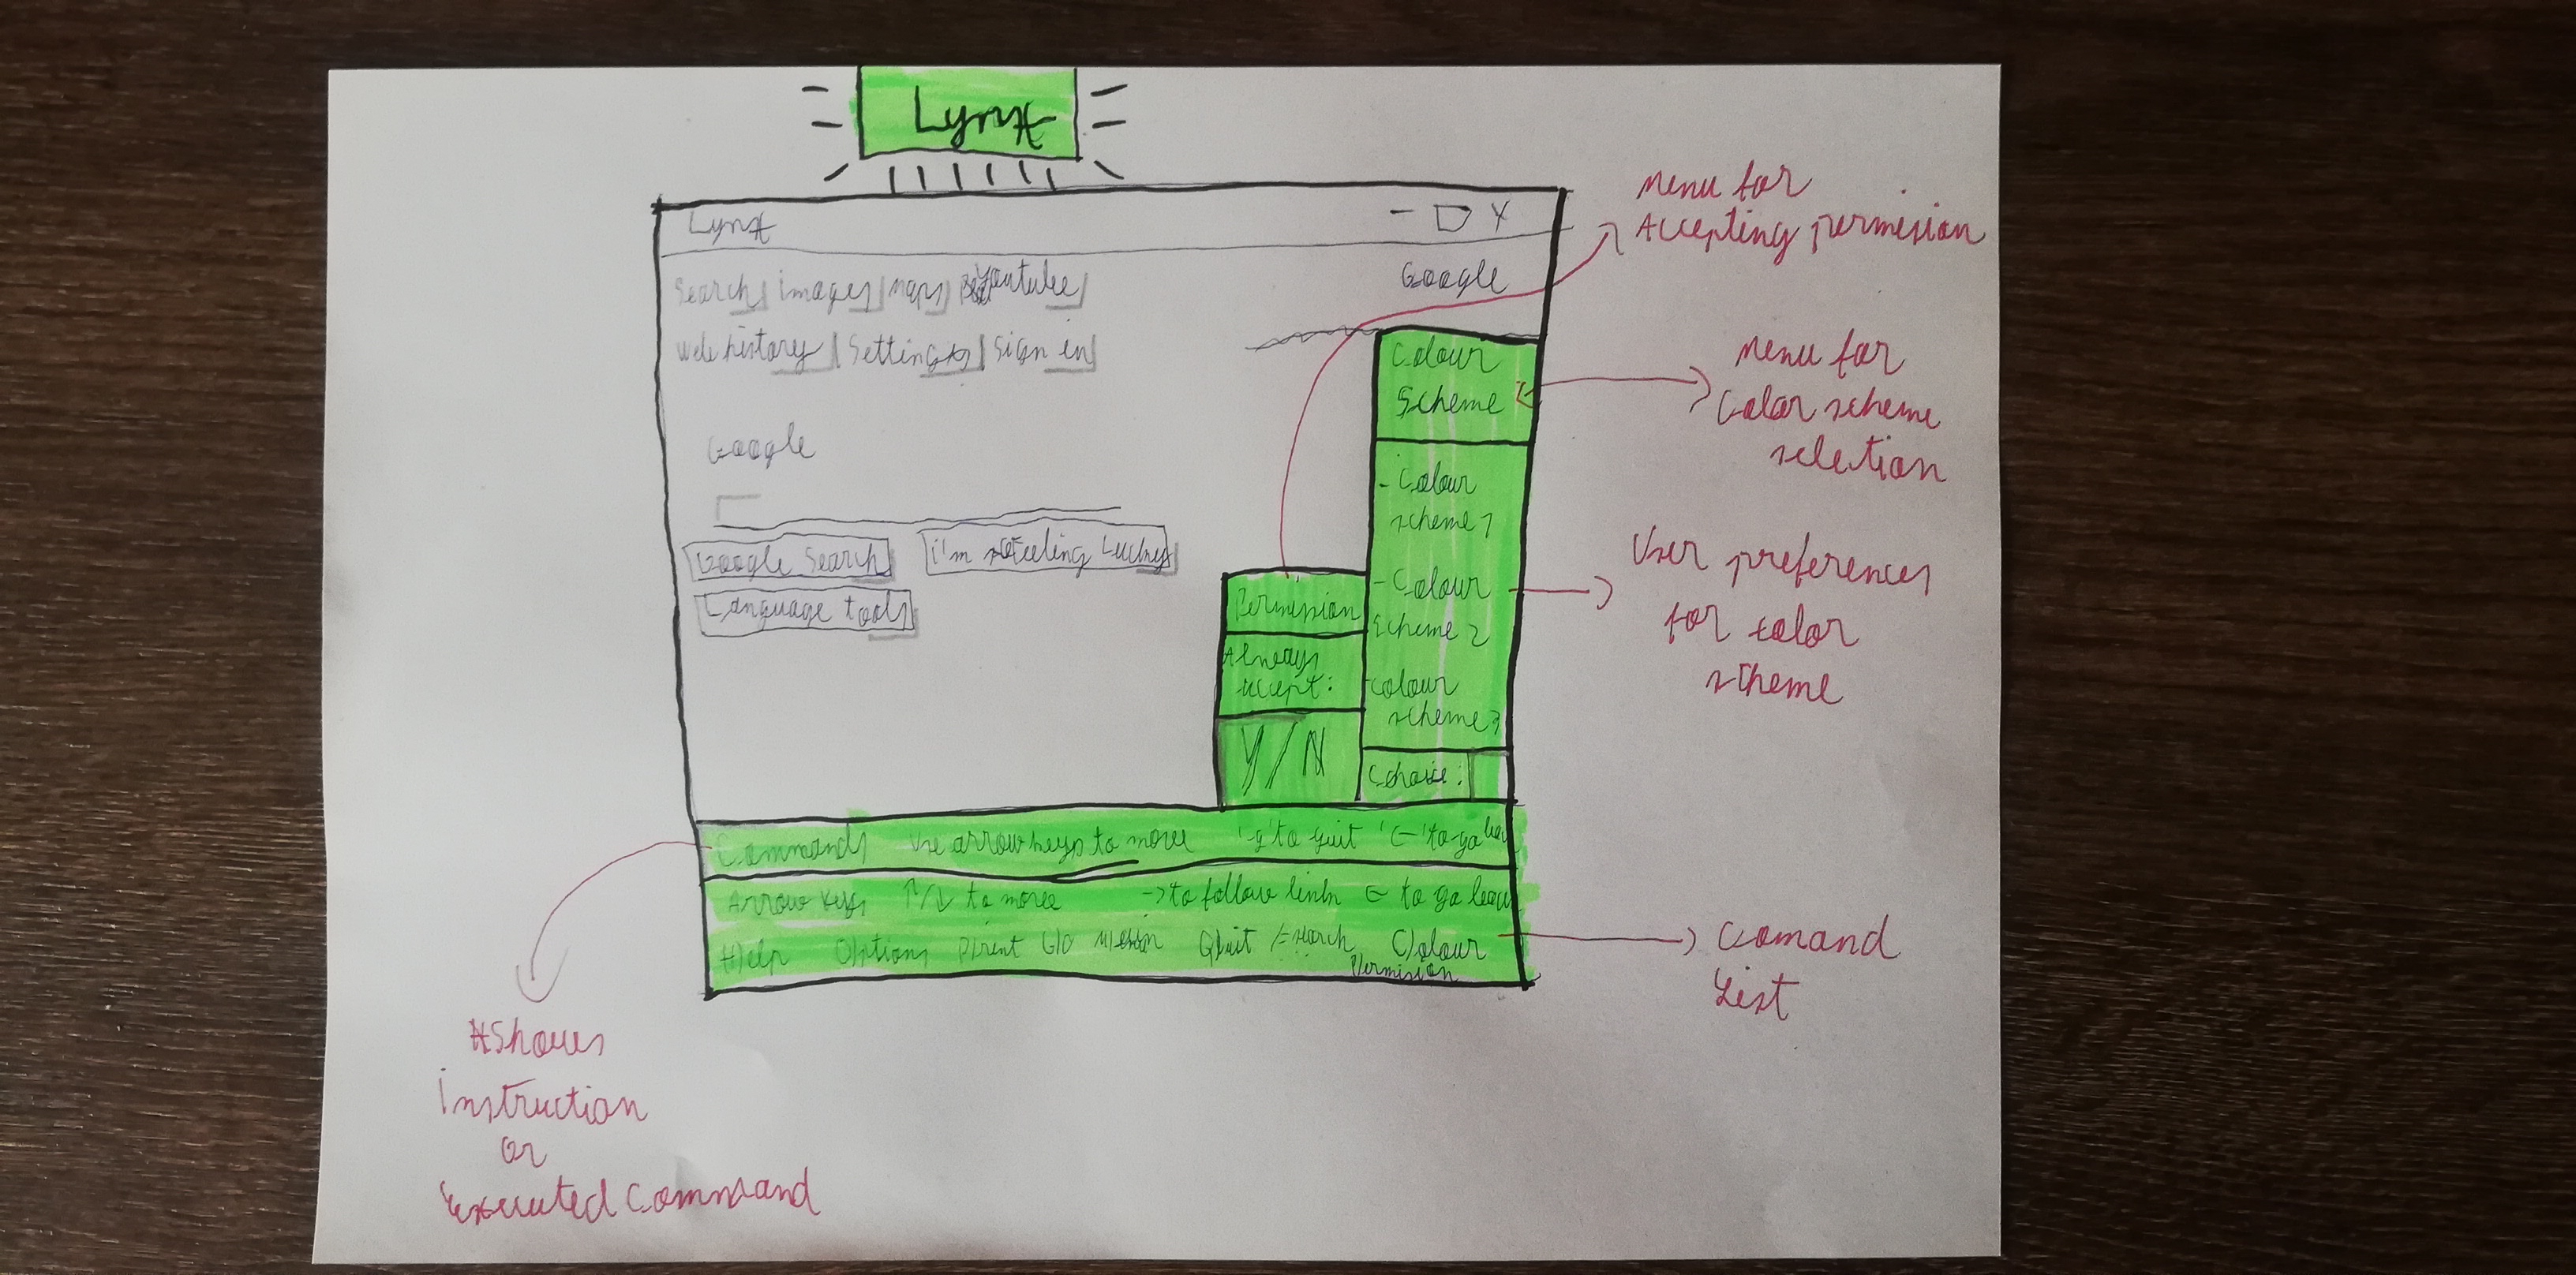 Lynx
Lynx - □ X
Google
Search Images Maps Youtube
Web history Settings Sign in
Google
Google Search I'm feeling Lucky
Language tools
Colour
Scheme
- Colour
scheme 1
- Colour
scheme 2
- colour
scheme 3
choise:
Permesion
Always
accept:
Y/N
Commands Use arrow keys to move '-q' to quit '←' to go
Arrow keys ↑/↓ to move -> to follow link ← to go
H)elp O)ptions P)rint G)o M)ain Q)uit /=search C)olour
Permision
Menu for
Accepting permesion
Menu for
Color scheme
selection
User preferences
for color
scheme
Comand
List
Shows
instruction
or
Executed Command